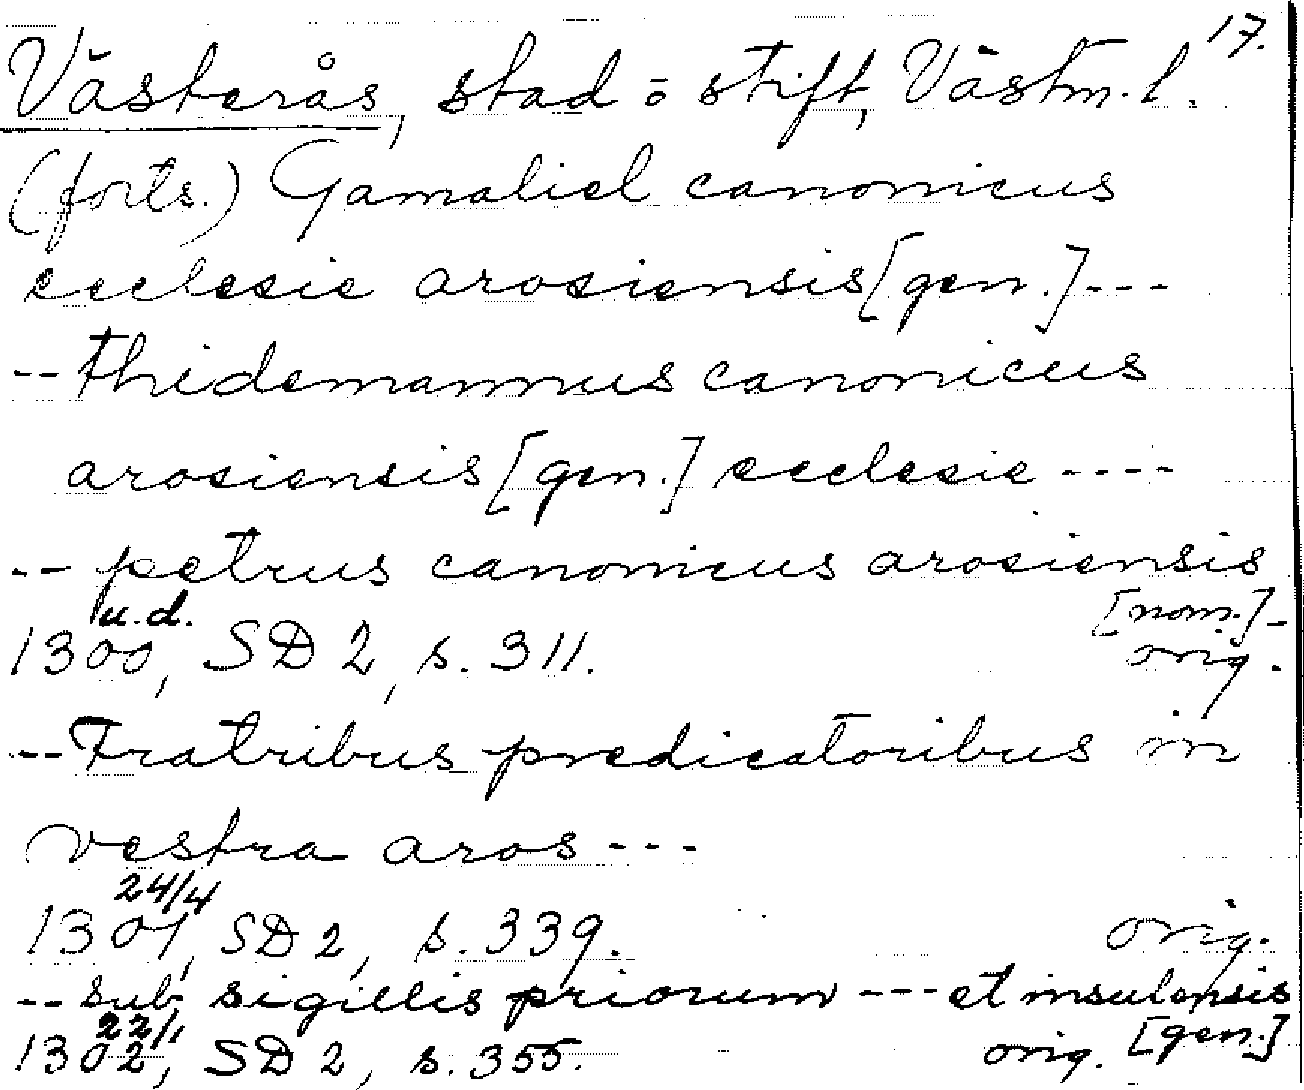 17.
Västerås, stad o. stift, Västm. l.
(forts.) Gamaliel canonicus
ecclesie arosiensis [gen.] ---
-- thidemannus canonicus
arosiensis [gen.] ecclesie ----
-- petrus canonicus arosiensis
[nom.] -
u.d.
1300, SD 2, s. 311. orig.
-- Fratribus predicatoribus in
vestra aros ---
24/4
1301, SD 2, s. 339. orig.
-- sub sigillis priorum --- et insulensis
[gen.]
22/1
1302, SD 2, s. 355. orig.